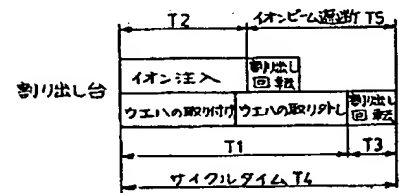 T2 イオンビーム遮断 T5
イオン注入 割り出し
回転
割り出し台
ウエハの取り付け ウエハの取り外し 割り出し
回転
T1 T3
サイクルタイム T4